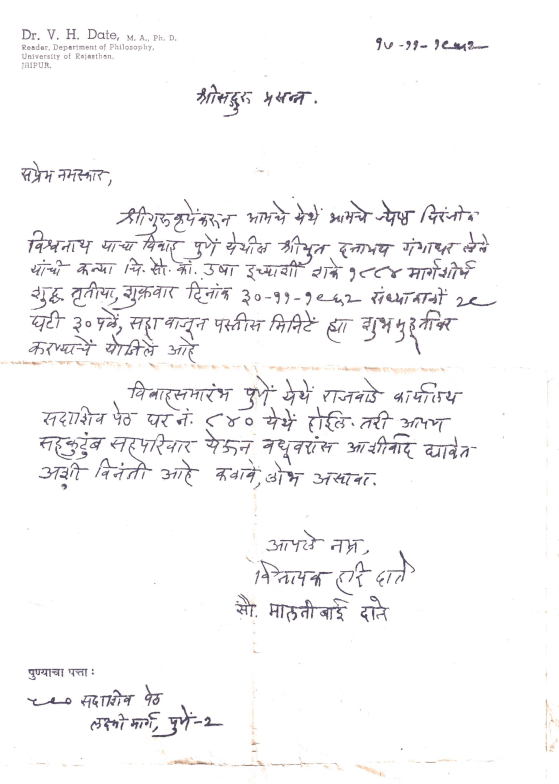 Dr. V. H. Date, M. A., Ph. D.
Reader, Department of Philosophy,
University of Rajasthan,
JAIPUR.
१७-११-१९६२
श्रीसद्गुरु प्रसन्न.
सप्रेम नमस्कार,
श्रीगुरुकृपेंकरून आमचे येथें आमचे ज्येष्ठ चिरंजीव
विश्वनाथ यांचा विवाह पुणें येथील श्रीयुत दत्तात्रय गंगाधर लेले
यांची कन्या चि. सौ. कां. उषा इच्याशीं शके १८८४ मार्गशीर्ष
शुद्ध तृतीया, शुक्रवार दिनांक ३०-११-१९६२ संध्याकाळीं २९
घटी ३० पळें, सहा वाजून पस्तीस मिनिटें ह्या शुभमुहूर्तावर
करण्याचें योजिलें आहे
विवाहसमारंभ पुणें येथें राजवाडे कार्यालय
सदाशिव पेठ घर नं. ८४० येथें होईल. तरी आपण
सहकुटुंब सहपरिवार येऊन वधूवरांस आशीर्वाद द्यावेत
अशी विनंती आहे कळावे, लोभ असावा.
आपले नम्र,
विनायक हरि दाते
सौ. मालतीबाई दाते
पुण्याचा पत्ता :
सदाशिव पेठ
लक्ष्मी मार्ग, पुणें-२